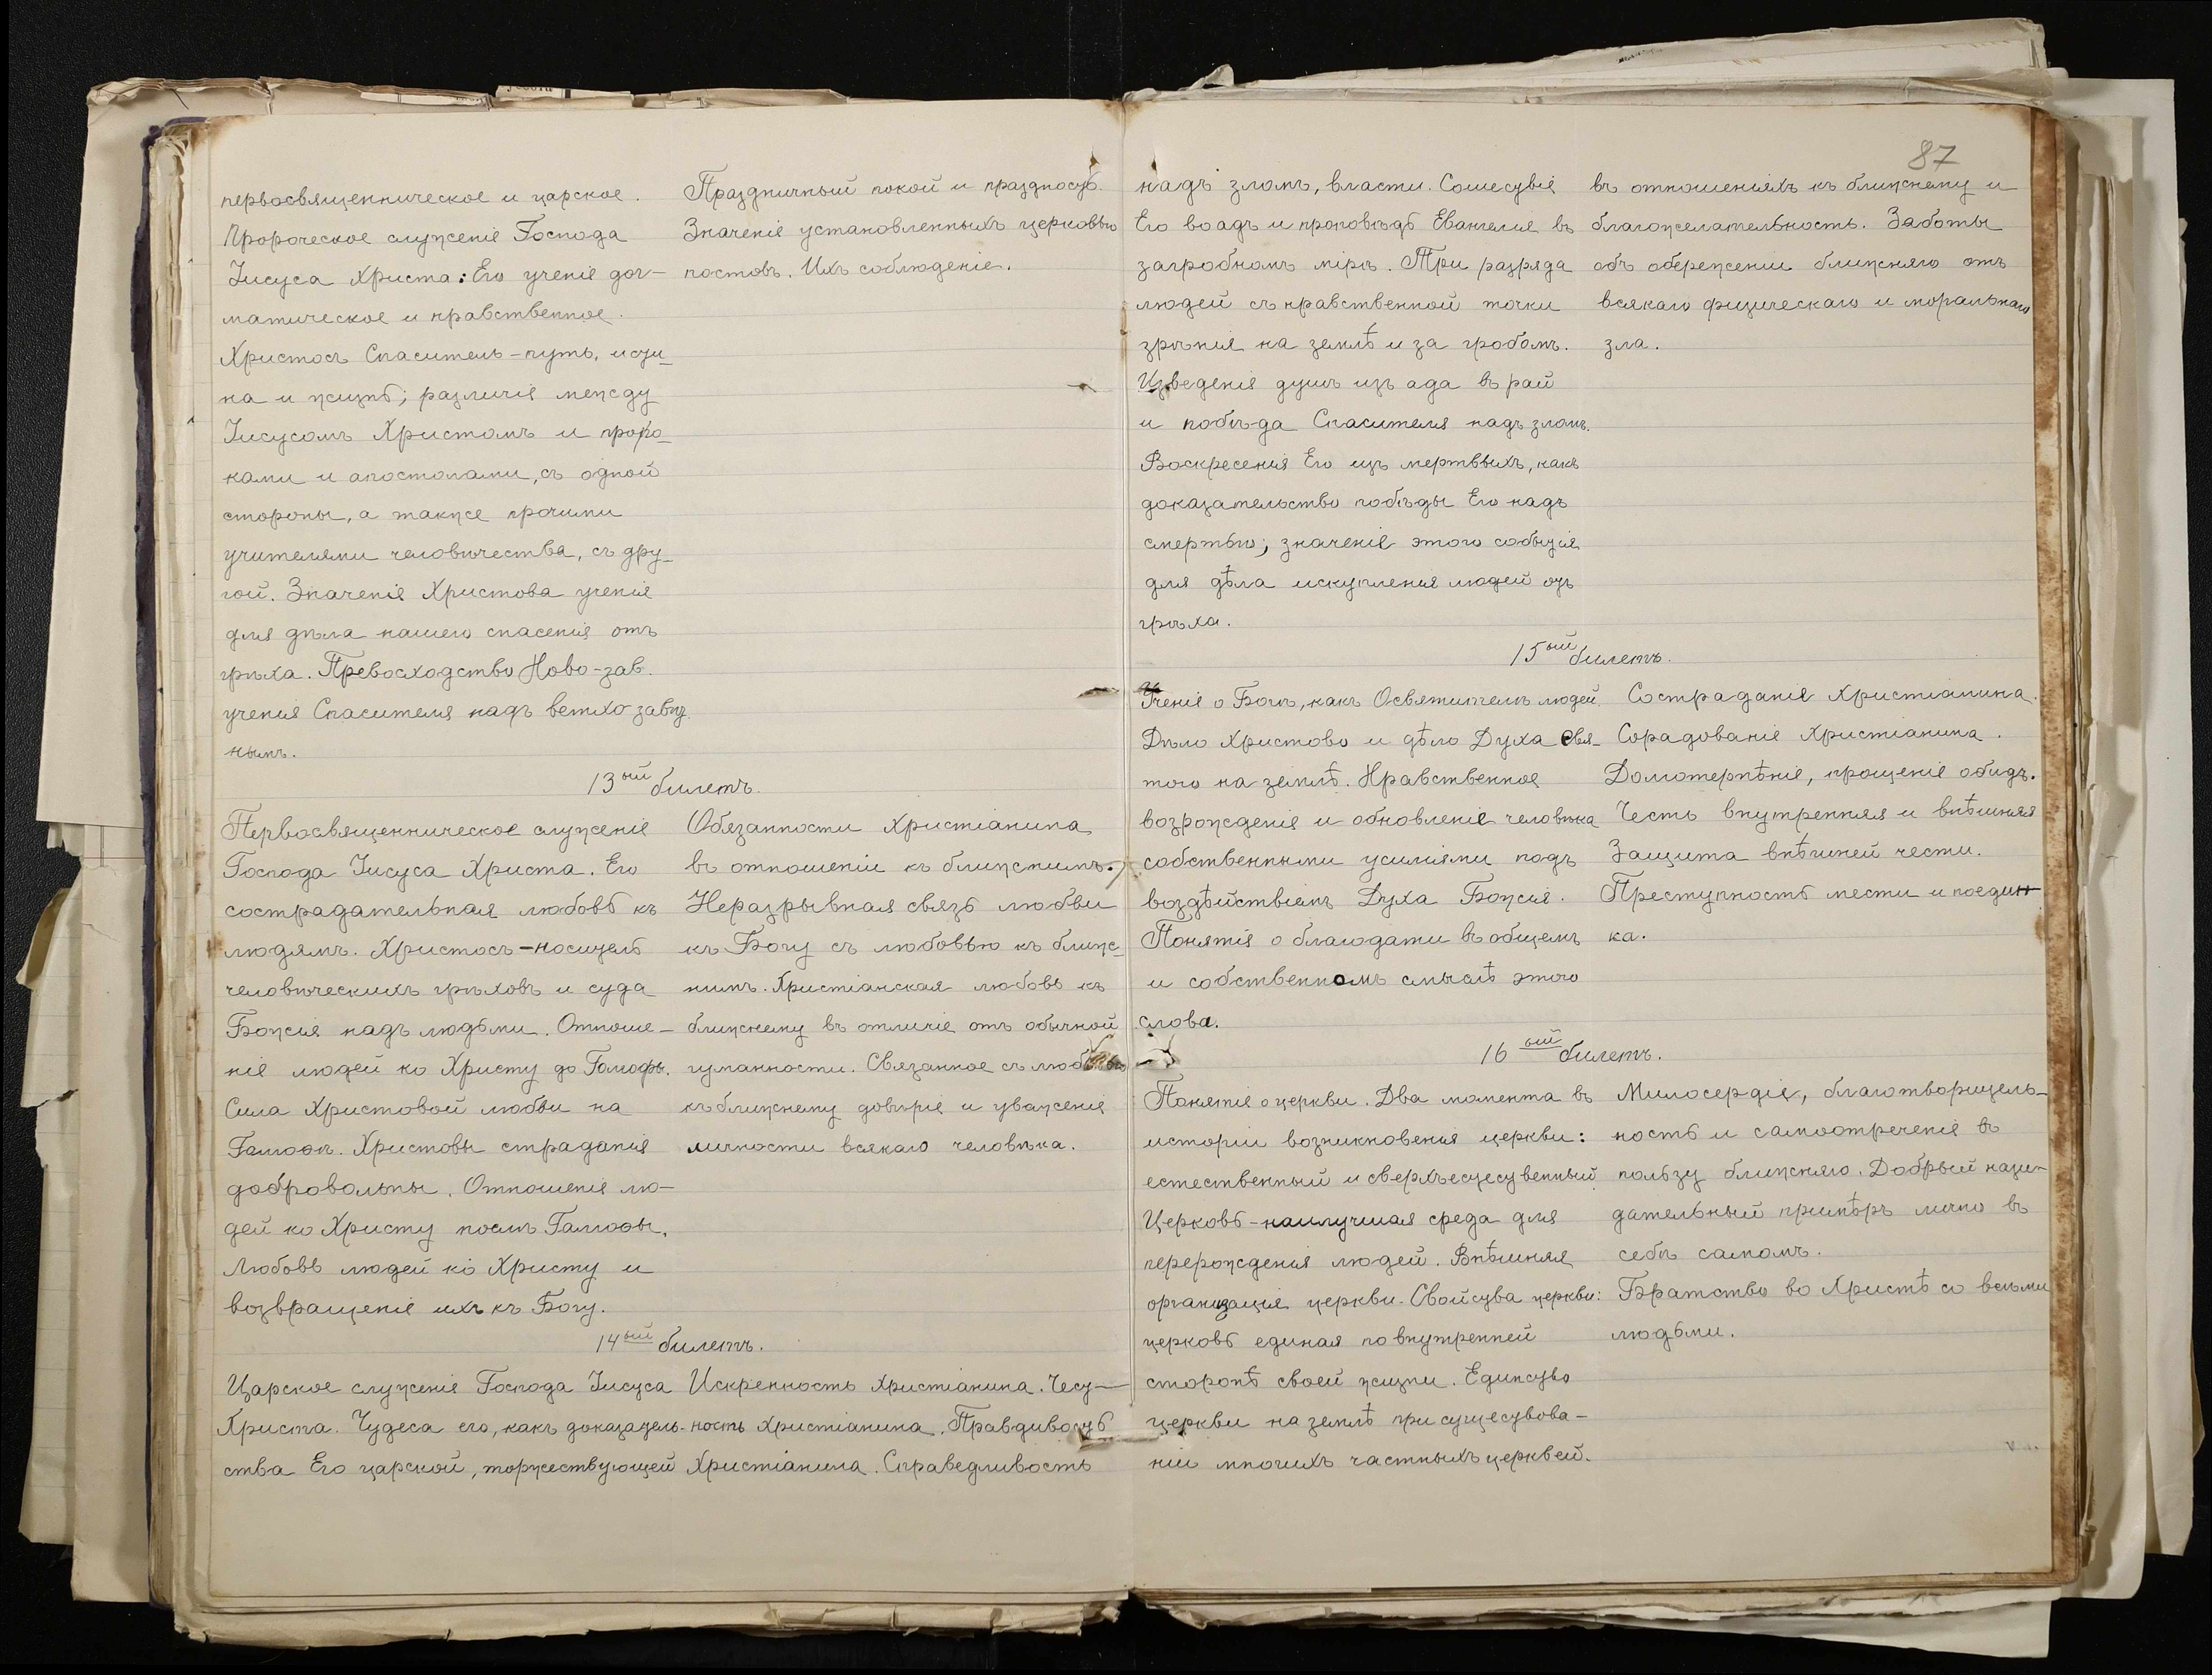 первосвященническое и царское.
Пророческое служеніе Господа
Іисуса Христа: Его ученіе дог-
матическое и нравственное.
Христосъ Спаситель – путь, исти-
на и жизнь; различіе между
Іисусомъ Христомъ и проро-
ками и апостолами, съ одной
стороны, а также прочими
учителями человѣчества, съ дру-
гой. Значеніе Христова ученія
для дѣла нашего спасенія отъ
грѣха. Превосходство Ново-зав.
ученія Спасителя надъ ветхо-завѣт
нымъ.
Праздничный покой и праздность.
Значеніе установленныхъ церковью
постовъ. Ихъ соблюденіе.
13ый билетъ.
Первосвященническое служеніе
Господа Іисуса Христа. Его
сострадательная любовь къ
людямъ. Христосъ – носитель
человѣческихъ грѣховъ и суда
Божія надъ людьми. Отноше-
ніе людей ко Христу до Голгоѳы.
Сила Христовой любви на
Голгоѳѣ. Христовы страданія
добровольны. Отношеніе лю-
дей ко Христу послѣ Голгоѳы.
Любовь людей ко Христу и
возвращеніе ихъ къ Богу.
Обязанности христіанина
въ отношеніи къ ближнимъ.
Неразрывная связь любви
къ Богу съ любовью къ ближ-
нимъ. Христіанская любовь къ
ближнему въ отличіе отъ обычной
гуманности. Связанное съ любовью
къ ближнему довѣріе и уваженіе
личности всякаго человѣка.
14ый билетъ.
Царское служеніе Господа Іисуса
Христа. Чудеса его, какъ доказатель-
ства Его царской, торжествующей
Искренность христіанина. Чест-
ность христіанина. Правдивость
Христіанина. Справедливость
87
надъ зломъ, власти. Сошествіе
Его во адъ и проповѣдь Евангелія въ
загробномъ мірѣ. Три разряда
людей съ нравственной точки
зрѣнія на землѣ и за гробомъ.
Изведенія душъ изъ ада въ рай
и побѣда Спасителя надъ зломъ.
Воскресенія Его изъ мертвыхъ, какъ
доказательство побѣды Его надъ
смертью; значеніе этого событія
для дѣла искупленія людей отъ
грѣха.
въ отношеніяхъ къ ближнему и
благожелательность. Заботы
объ обереженіи ближняго отъ
всякаго физическаго и моральнаго
зла.
15ый билетъ.
Ученіе о Богѣ, какъ Освятителѣ людей.
Дѣло Христово и дѣло Духа Свя-
того на землѣ. Нравственное
возрожденія и обновленіе человѣка
собственными усиліями подъ
воздѣйствіемъ Духа Божія.
Понятія о благодати въ общемъ
и собственномъ смыслѣ этого
слова.
Состраданіе христіанина.
Сорадованіе христіанина.
Долготерпѣніе, прощеніе обидъ.
Честь внутренняя и внѣшняя
Защита внѣшней чести.
Преступность мести и поедин-
ка.
16ый билетъ.
Понятіе о церкви. Два момента въ
исторіи возникновенія церкви:
естественный и сверхъестественный
Церковь – наилучшая среда для
перерожденія людей. Внѣшняя
организація церкви. Свойства церкви:
церковь единая по внутренней
сторонѣ своей жизни. Единство
церкви на землѣ при существова-
ніи многихъ частныхъ церквей.
Милосердіе, благотворитель-
ность и самоотреченіе въ
пользу ближняго. Добрый нази-
дательный примѣръ лично въ
себѣ самомъ.
Братство во Христѣ со всѣми
людьми.